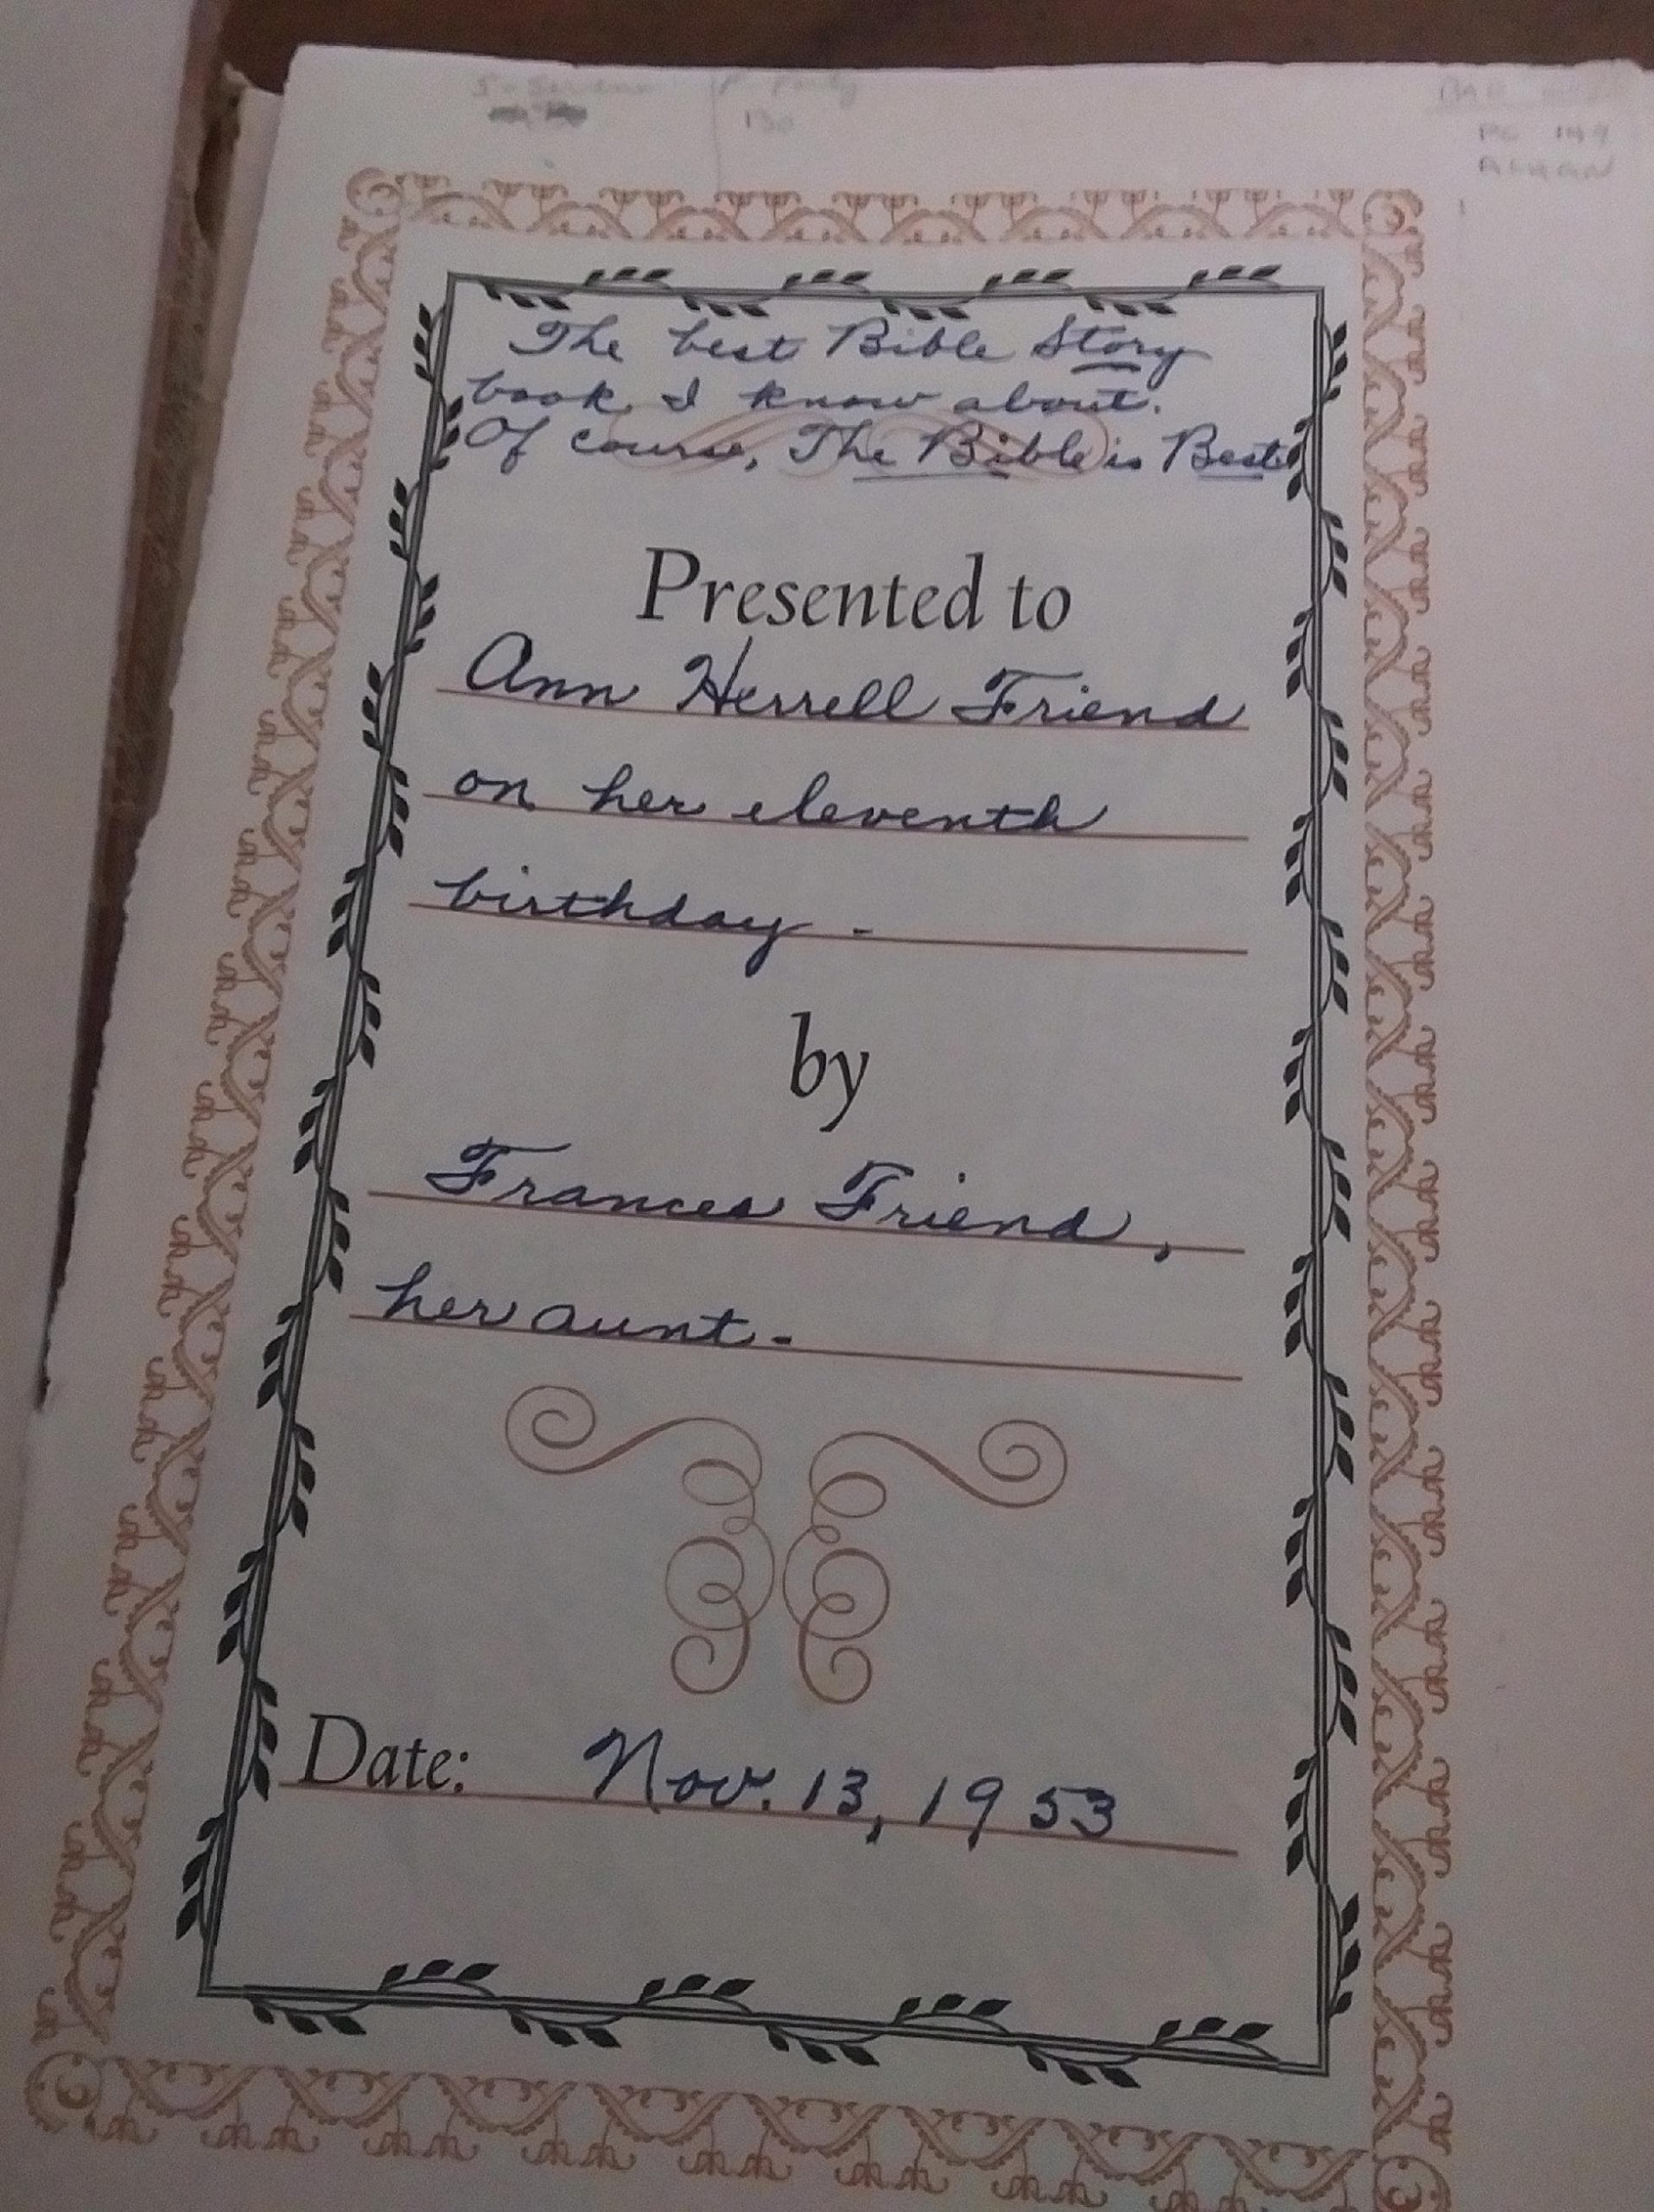 130
PG 149
The best Bible Story
book I know about.
Of course, The Bible is Best
Presented to
Ann Herrell Friend
on her eleventh
birthday -
by
Frances Friend,
her aunt -
Date: Nov. 13, 1953